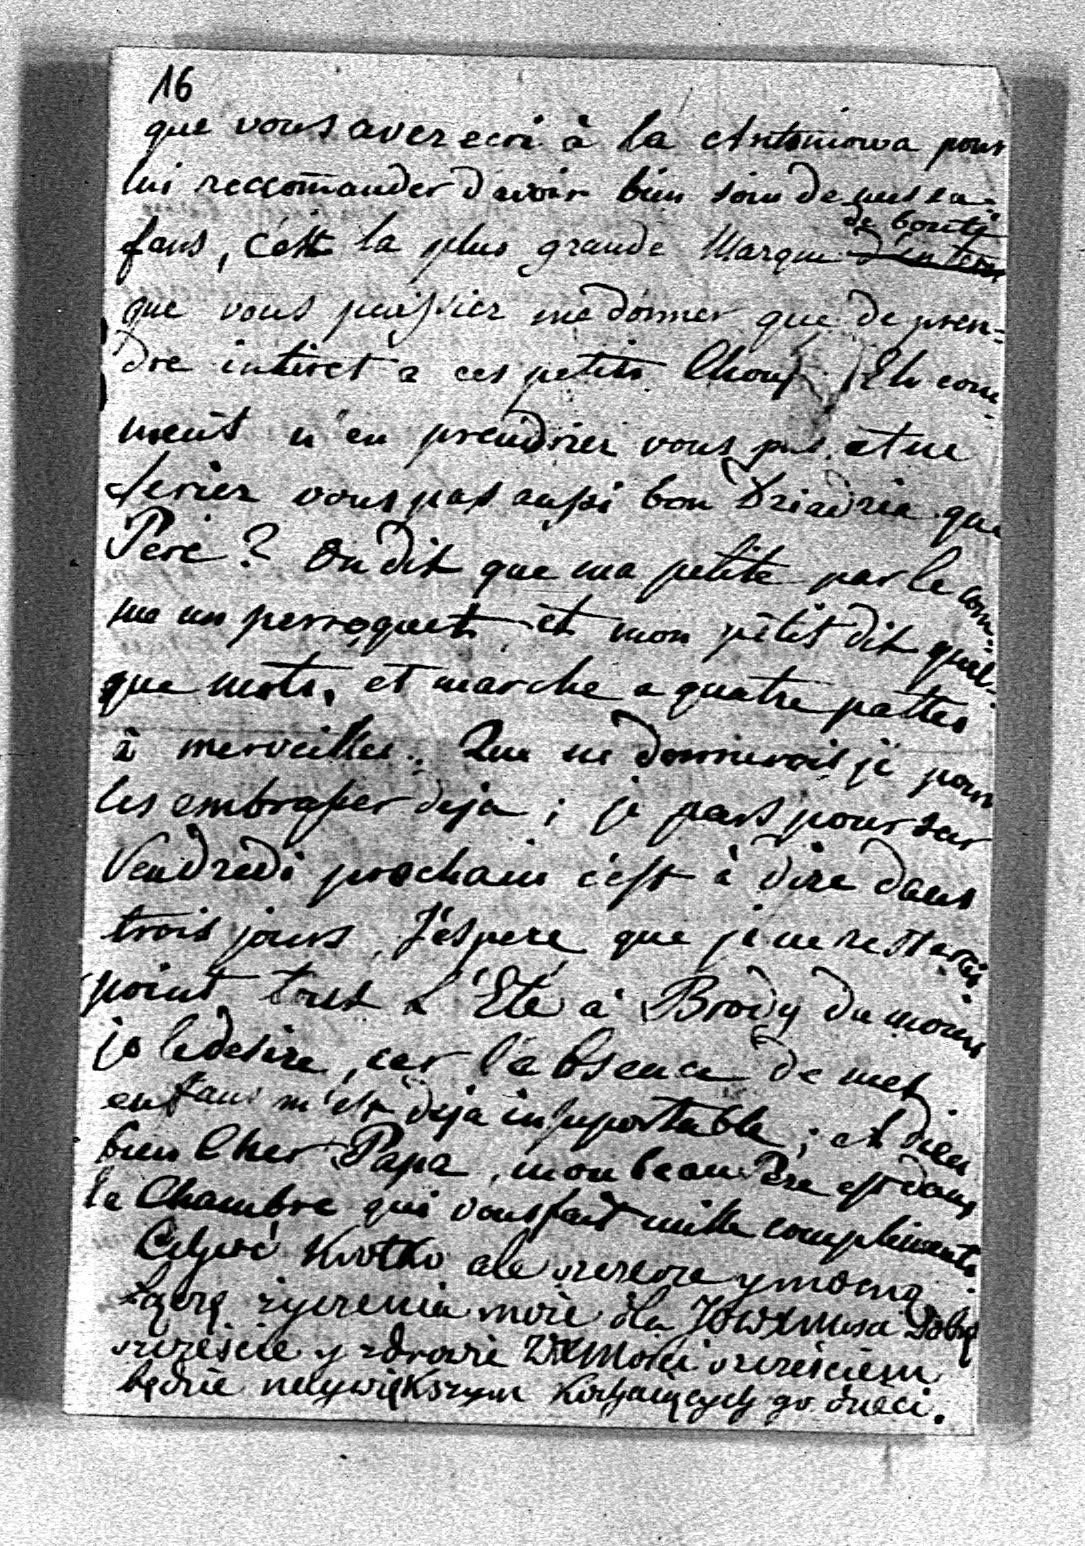 16
que vous avez ecri à la Antoniowa pour
lui reccomander d'avoir bien soin de mes en-
fans, c'est la plus grande Marque d'interet de bonté
que vous puissiez me donner que de pren-
dre interet a ces petits Choux. Eh com-
ment n'en prendriez vous pas, et ne
seriez vous pas aussi bon Dziadzia que
Pere ? On dit que ma petite parle com-
me un perroquet et mon petit dit quel-
que mots, et marche a quatre pattes
à merveilles. Que ne donnerois je pour
les embrasser deja ; je pars pour
Vendredi prochain c'est à dire dans
trois jours, J'éspere que je ne resterai
point tout L'Eté à Brody du moins
je le desire, car l'absence de mes
enfans m'est deja insuportable ; adieu
bien Cher Papa, mon beau Pere est dans
la Chambre qui vous fait mille compliments
krotko ale szczerze y mocno
Łączę życzenia moie dla JOWXMosci Dobr
szczęście y zdrowie WXMosci szczęściem
będzie naywiększym kochaiących go dzieci.